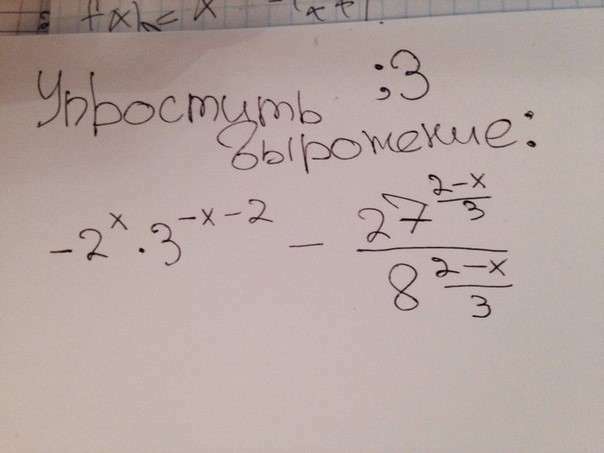 f(x) = x
Упростить ;3
Вырожение:
-2^x · 3^{-x-2} - \frac{27^{\frac{2-x}{3}}}{8^{\frac{2-x}{3}}}